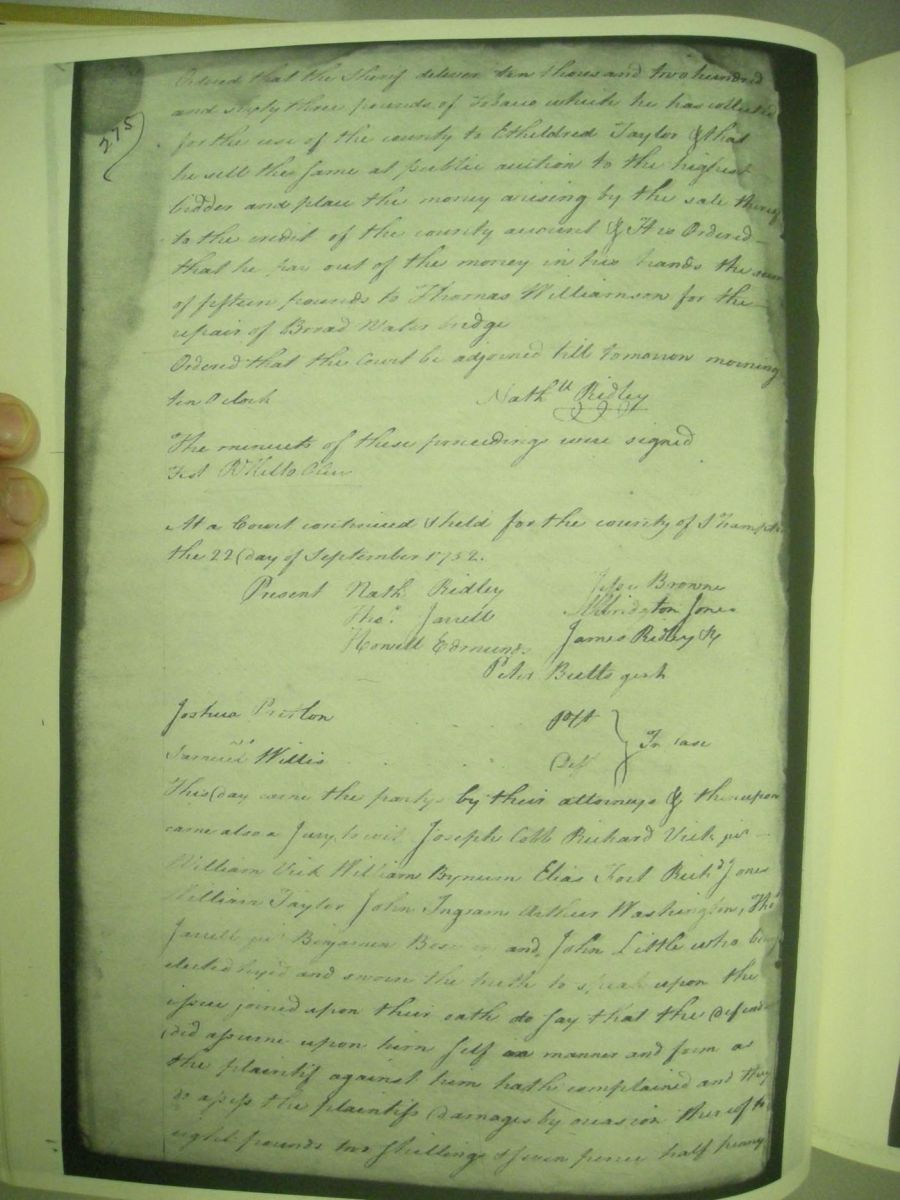 275
Ordered that the Sherif deliver ten thousand two hundred
and sixty three pounds of Tobacco which he has collected
for the use of the county to Etheldred Taylor & that
he sell the same at public auction to the highest
bidder and place the money arising by the sale thereof
to the credit of the county account & It is Ordered
that he pay out of the money in his hands the sum
of fifteen pounds to Thomas Williamson for the
repair of Broad Water bridge
Ordered that the Court be adjorned till tomorrow morning
ten O Clock Nathll Ridley
The minuets of these proceedings were signed
Test
At a Court continued & held for the county of Sthampton
the 22 day of September 1752.
Present Nath. Ridley Jesse Browne
Thos. Jarrell Albridgton Jones
Howell Edmunds James Ridley &
Peter Butts gent
Joshua Preston Plft
In case
Samuel Willis Def
This day came the partys by their attorneys & thereupon
came also a Jury, to wit, Joseph Cobb Richard Vick jur
William Vick William Bynum Elias Fort Richd Jones
William Taylor John Ingram Arthur Washington, Thos
Jarrell jur Benjamin and John Little who being
elected tryed and sworn the truth to speak upon the
issue joined upon their oath do say that the defend
did assume upon him self in manner and form as
the plaintif against him hath complained and they
do assess the plaintifs damages by occasion thereof to
eight pounds two shillings & seven pence half penny